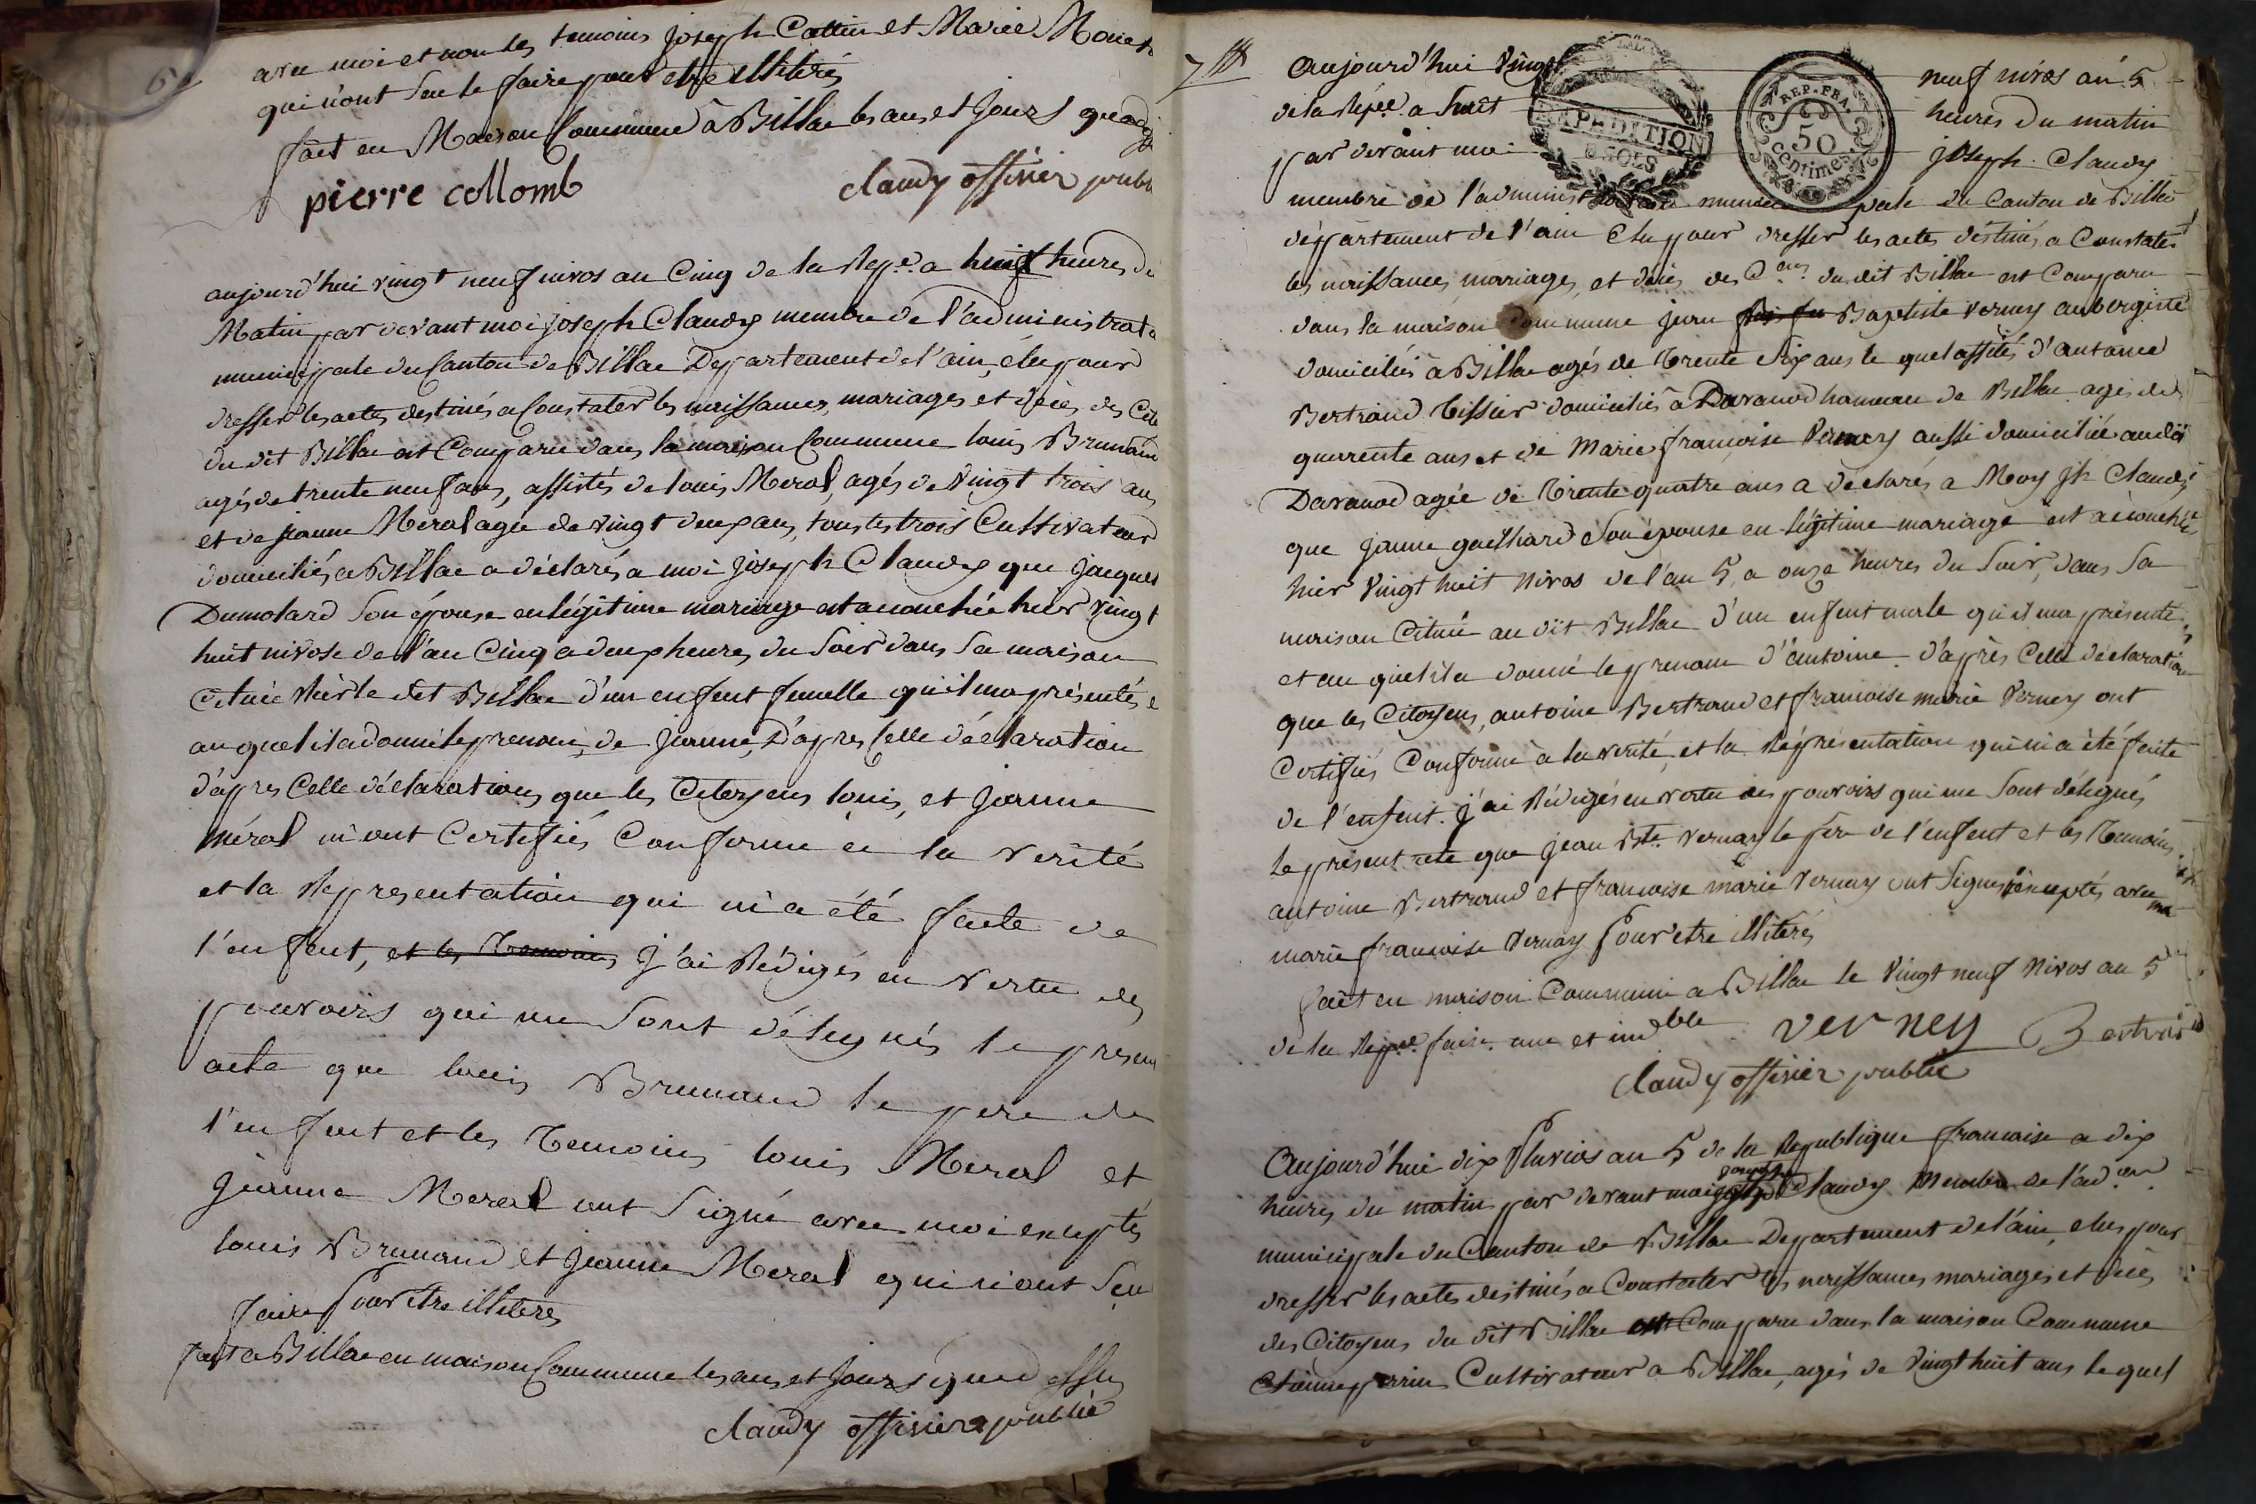 6
avec moi et non les temoins joseph Cattin et Marie
qui n'ont seu le faire pour etre illiterés
fait en Maison Commune a Billae les ans et jours que
pierre collomb
claudy offisier publi
aujourd'hui vingt neuf nivos an Cinq de la Rep.e a huit heures du
Matin par devant moi joseph Claudy membre de l'administrat
municipale du Canton de Billae Departement de l'ain, élu pour
dresser les actes destinés a Constater les naissances, mariages et décès des Cit
du dit Billae est Comparu dans la maison Commune louis Brunand
agés de trente neuf ans, assistés de louis Meral, agés de vingt trois ans
et de jeanne Meral agée de vingt deux ans, tous les trois Cultivateurs
domiciliés a Billae a déclarés a moi joseph Claudy que jacques
Dumolard son épouse en légitime mariage est acouchée hier vingt
huit nivose de l'an Cinq a deux heures du soir dans sa maison
Cituée dit Billae d'un enfent femelle qu'il ma présentés e
au quel il a donné le prenom, de jeanne, D'apres Celle déclaration
d'apres Celle déclaration que les Citoyens louis, et jeanne
méral m'ont Certifiés Conforme à la verité
et la Representation qui m'a été faite de
l'enfent, et les Temoins j'ai Rédigés en vertu des
pouvoirs qui me sont délegués le presen
acte que louis Brunand le pere de
l'enfent et les Temoins louis Meral et
jeanne Meral ont signé avec moi exeptés
louis Brunand et jeanne Meral qui n'ont seu
faire pour etre illiterés
fait a Billae en maison Commune les ans et jours que d
claudy offisier publie
7
aujourd'hui vingt neuf nivos an 5
de la Répe. a huit heures du matin
par devant moi joseph Claudy
EXPEDITION
8 SOLS
REP. FRA.
50
centimes
membre de l'administration municipale du Canton de Billae
département de l'ain élu pour dresser les actes déstinés a Constater
les naissances, mariages, et décès des C.ens du dit Billae est Comparu
dans la maison Commune jean Baptiste verney aubergiste
domiciliés à Billae agés de Trente six ans le quel assités d'antoine
Bertrand tissier domiciliés à Davanod hameau de Billae agés de
quarente ans et de Marie francoise Verney aussi domiciliée audit
Davanod agée de Trente quatre ans a déclarés a Moy jh Claudy
que jeanne guelhard son épouse en légitime mariage est acouchée
hier vingt huit nivos de l'an 5, a onze heures du soir, dans sa
maison Cituée au dit Billae d'un enfent male qu'il ma présenté
et au quel il a donné le prenom d'antoine. d'après Celle déclaration
que les Citoyens, antoine Bertrand et francoise marie Verney ont
Certifiés Conforme à la verité, et la Représentation qui m'a été faite
de l'enfent. j'ai Rédigés en vertu des pouvoirs qui me sont délegués
le présent acte que jean Bte. Vernay le père de l'enfent et les Temoins
antoine Bertrand et francoise marie Vernay ont signés exceptés avec
marie francoise Vernay pour etre illiterés
fait en maison Commune a Billae le vingt neuf Nivos an 5
de la Repe. une et indble
verney
Bertrand
claudy offisier publie
Aujourd'hui dix Pluvios an 5 de la Republique francoise a dix
heures du matin par devant moi joseph Claudy Membre de l'ad.on
municipale du Canton de Billae Departement de l'ain, elus pour
dresser les actes destinés a Constater les naissances mariages et décès
des Citoyens du dit Billae est Comparu dans la maison Commune
Etienne perrin Cultivateur a Billae, agés de vingt huit ans le quel